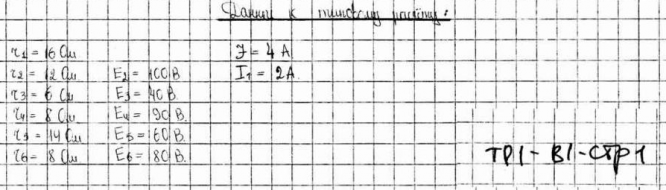 Данные к типовому расчёту:
r1 = 16 Ом J = 4 A
r2 = 12 Ом E2 = 100 В I1 = 2A
r3 = 6 Ом E3 = 40 В.
r4 = 8 Ом E4 = 90 В.
r5 = 14 Ом E5 = 60 В.
r6 = 8 Ом E6 = 80 В.
ТР1-В1-СТР1